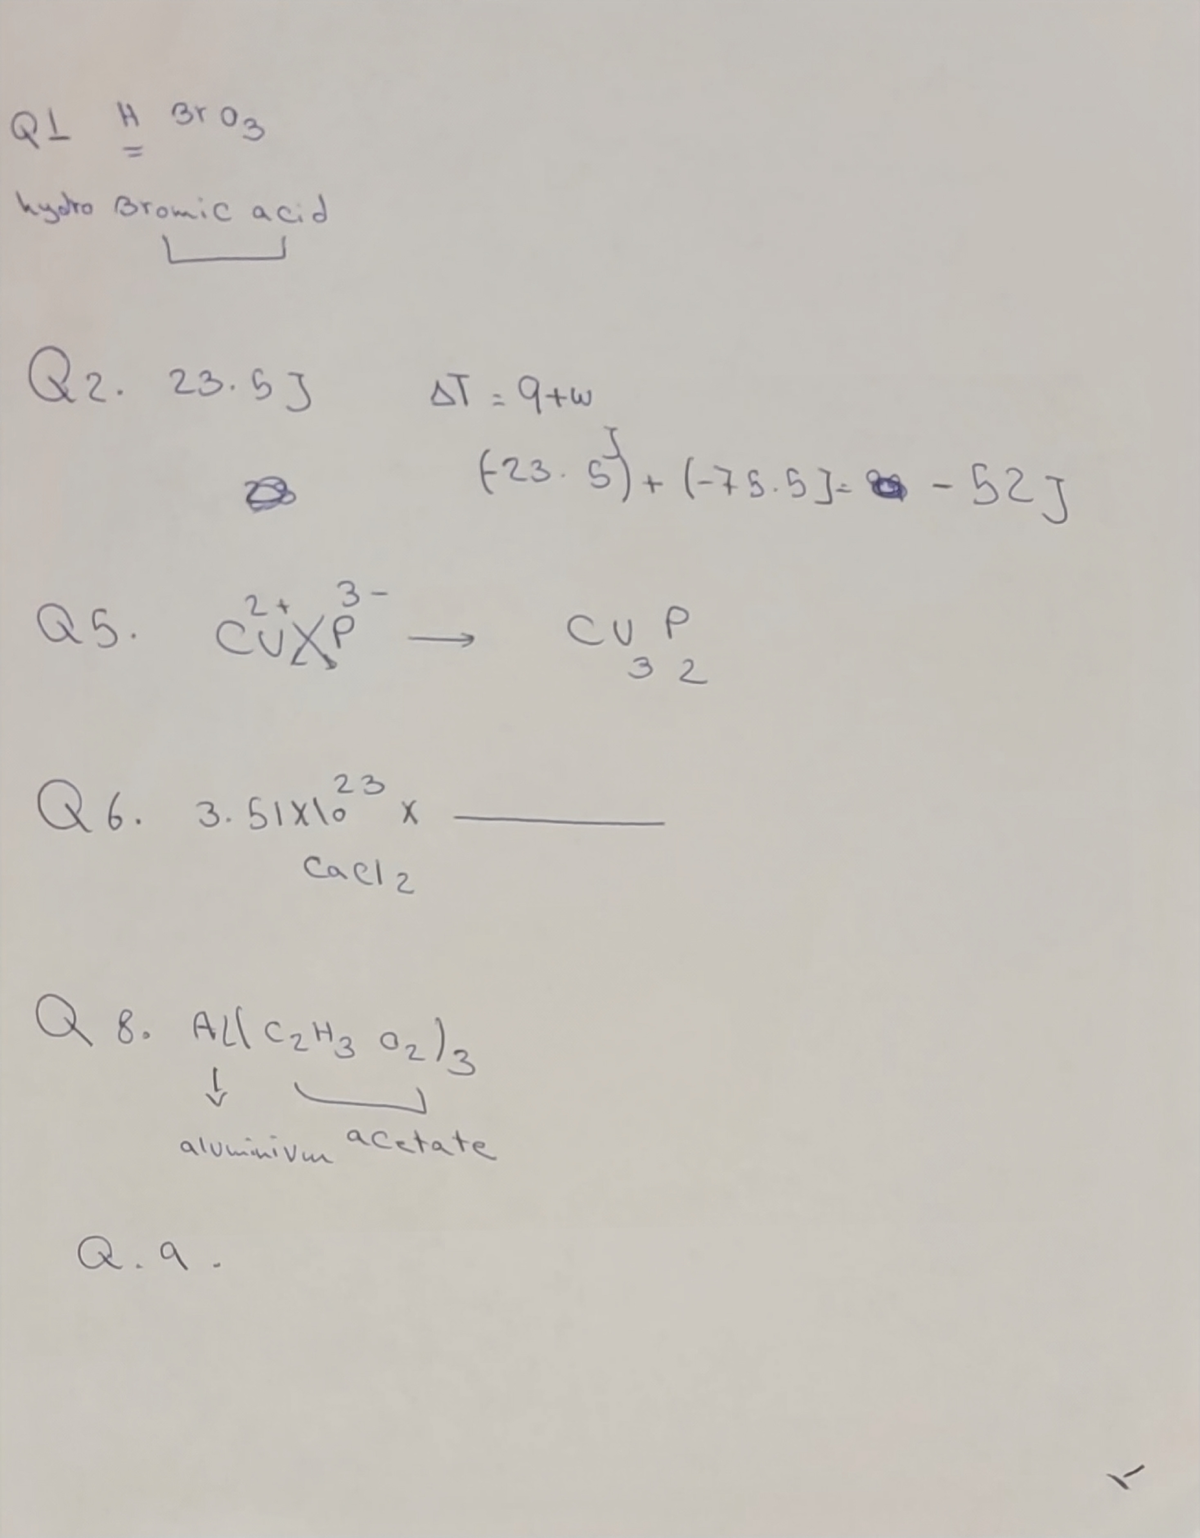 Q1 H BrO3
hydro Bromic acid
Q2. 23.5J ΔT = q+w
(-23.5J)+(-75.5J= -52J
Q5. Cu2+XP3- → Cu3P2
Q6. 3.51x10^23 x
CaCl2
Q 8. Al(C2H3O2)3
↓
aluminium acetate
Q.9.